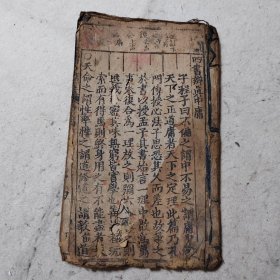 四書辨真中庸
子程子曰不偏之謂中不易之謂庸中者
天下之正道庸者天下之定理此篇乃孔
門傳授心法子思恐其久而差也故筆之
於書以授孟子其書始言一理中散為萬
事末復合為一理放之則彌六合卷之則
退藏於密其味無窮皆實學也善讀者玩
索而有得焉則終身用之有不能盡者矣
天命之謂性率性之謂道修道之謂教